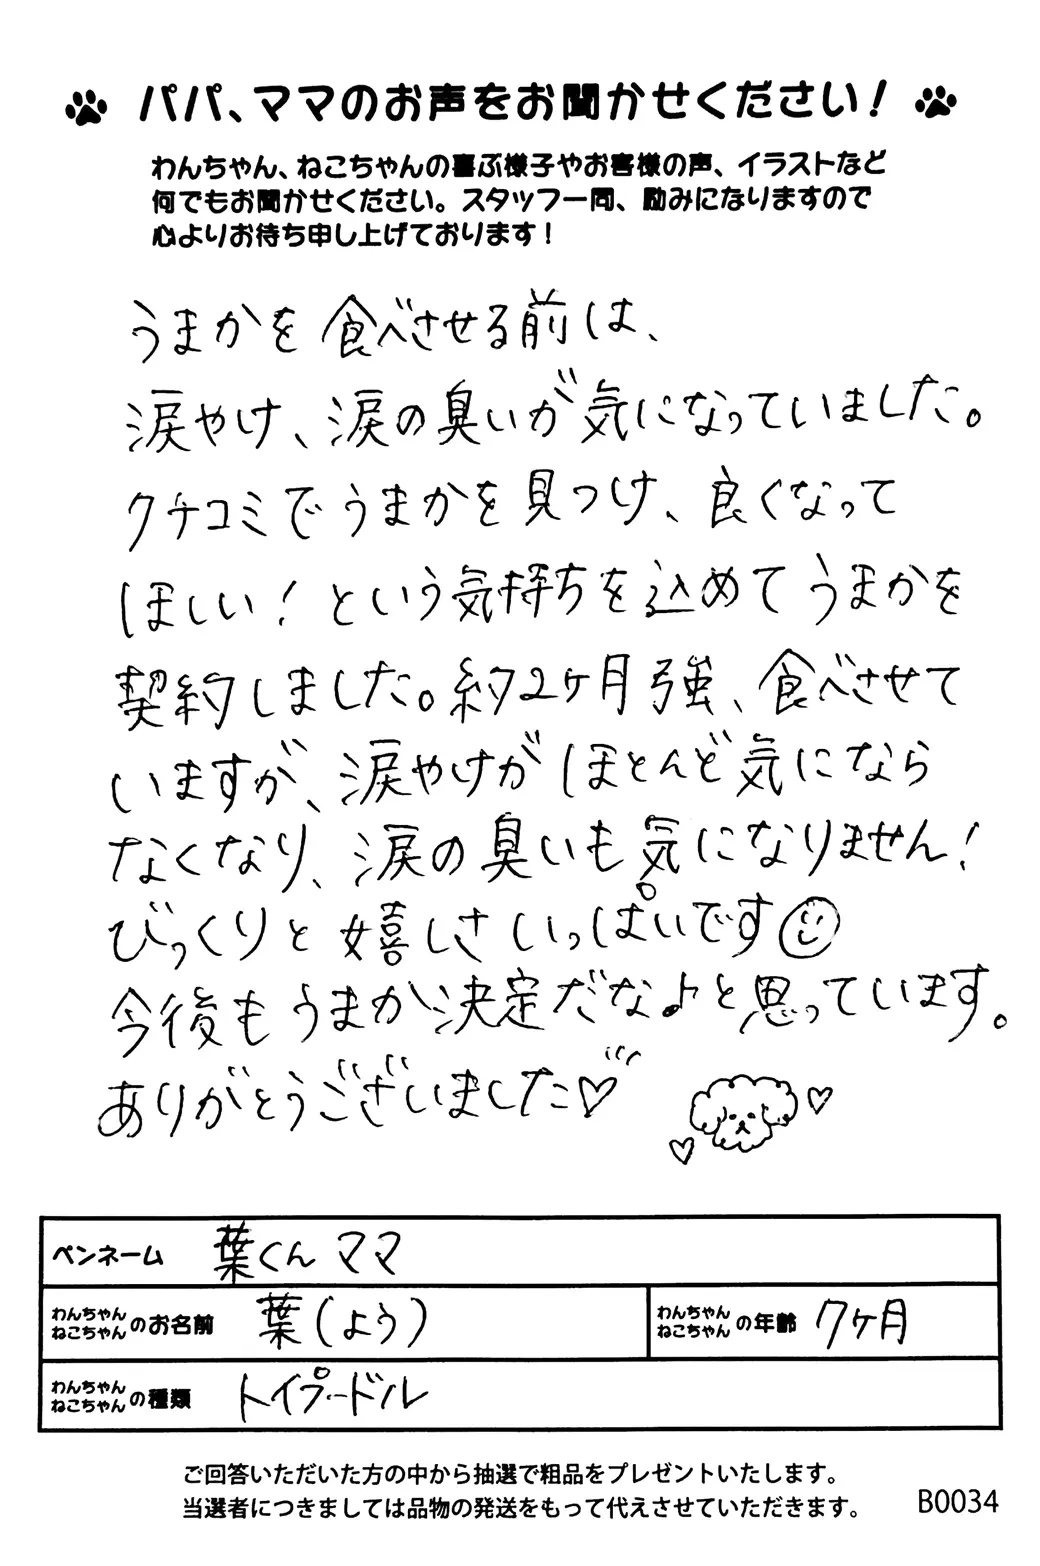 パパ、ママのお声をお聞かせください！
わんちゃん、ねこちゃんの喜ぶ様子やお客様の声、イラストなど
何でもお聞かせください。スタッフ一同、励みになりますので
心よりお待ち申し上げております！
うまかを食べさせる前は、
涙やけ、涙の臭いが気になっていました。
クチコミでうまかを見つけ、良くなって
ほしい！という気持ちを込めてうまかを
契約しました。約2ヶ月強、食べさせて
いますが、涙やけがほとんど気になら
なくなり、涙の臭いも気になりません！
びっくりと嬉しさいっぱいです☺
今後もうまか決定だなぁと思っています。
ありがとうございました♡
ペンネーム 葉くんママ
わんちゃん ねこちゃん のお名前 葉(よう)
わんちゃん ねこちゃん の年齢 7ヶ月
わんちゃん ねこちゃん の種類 トイプードル
ご回答いただいた方の中から抽選で粗品をプレゼントいたします。
当選者につきましては品物の発送をもって代えさせていただきます。
B0034